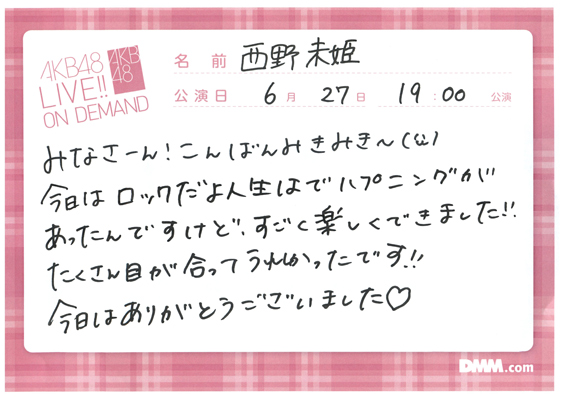 AKB48
LIVE!!
ON DEMAND
AKB
48
名前 西野未姫
公演日 6月 27日 19:00 公演
みなさーん!こんばんみきみき〜(ω)
今日はロックだよ人生はでハプニングが
あったんですけど、すごく楽しくできました!!
たくさん目が合ってうれしかったです!!
今日はありがとうございました♡
DMM.com